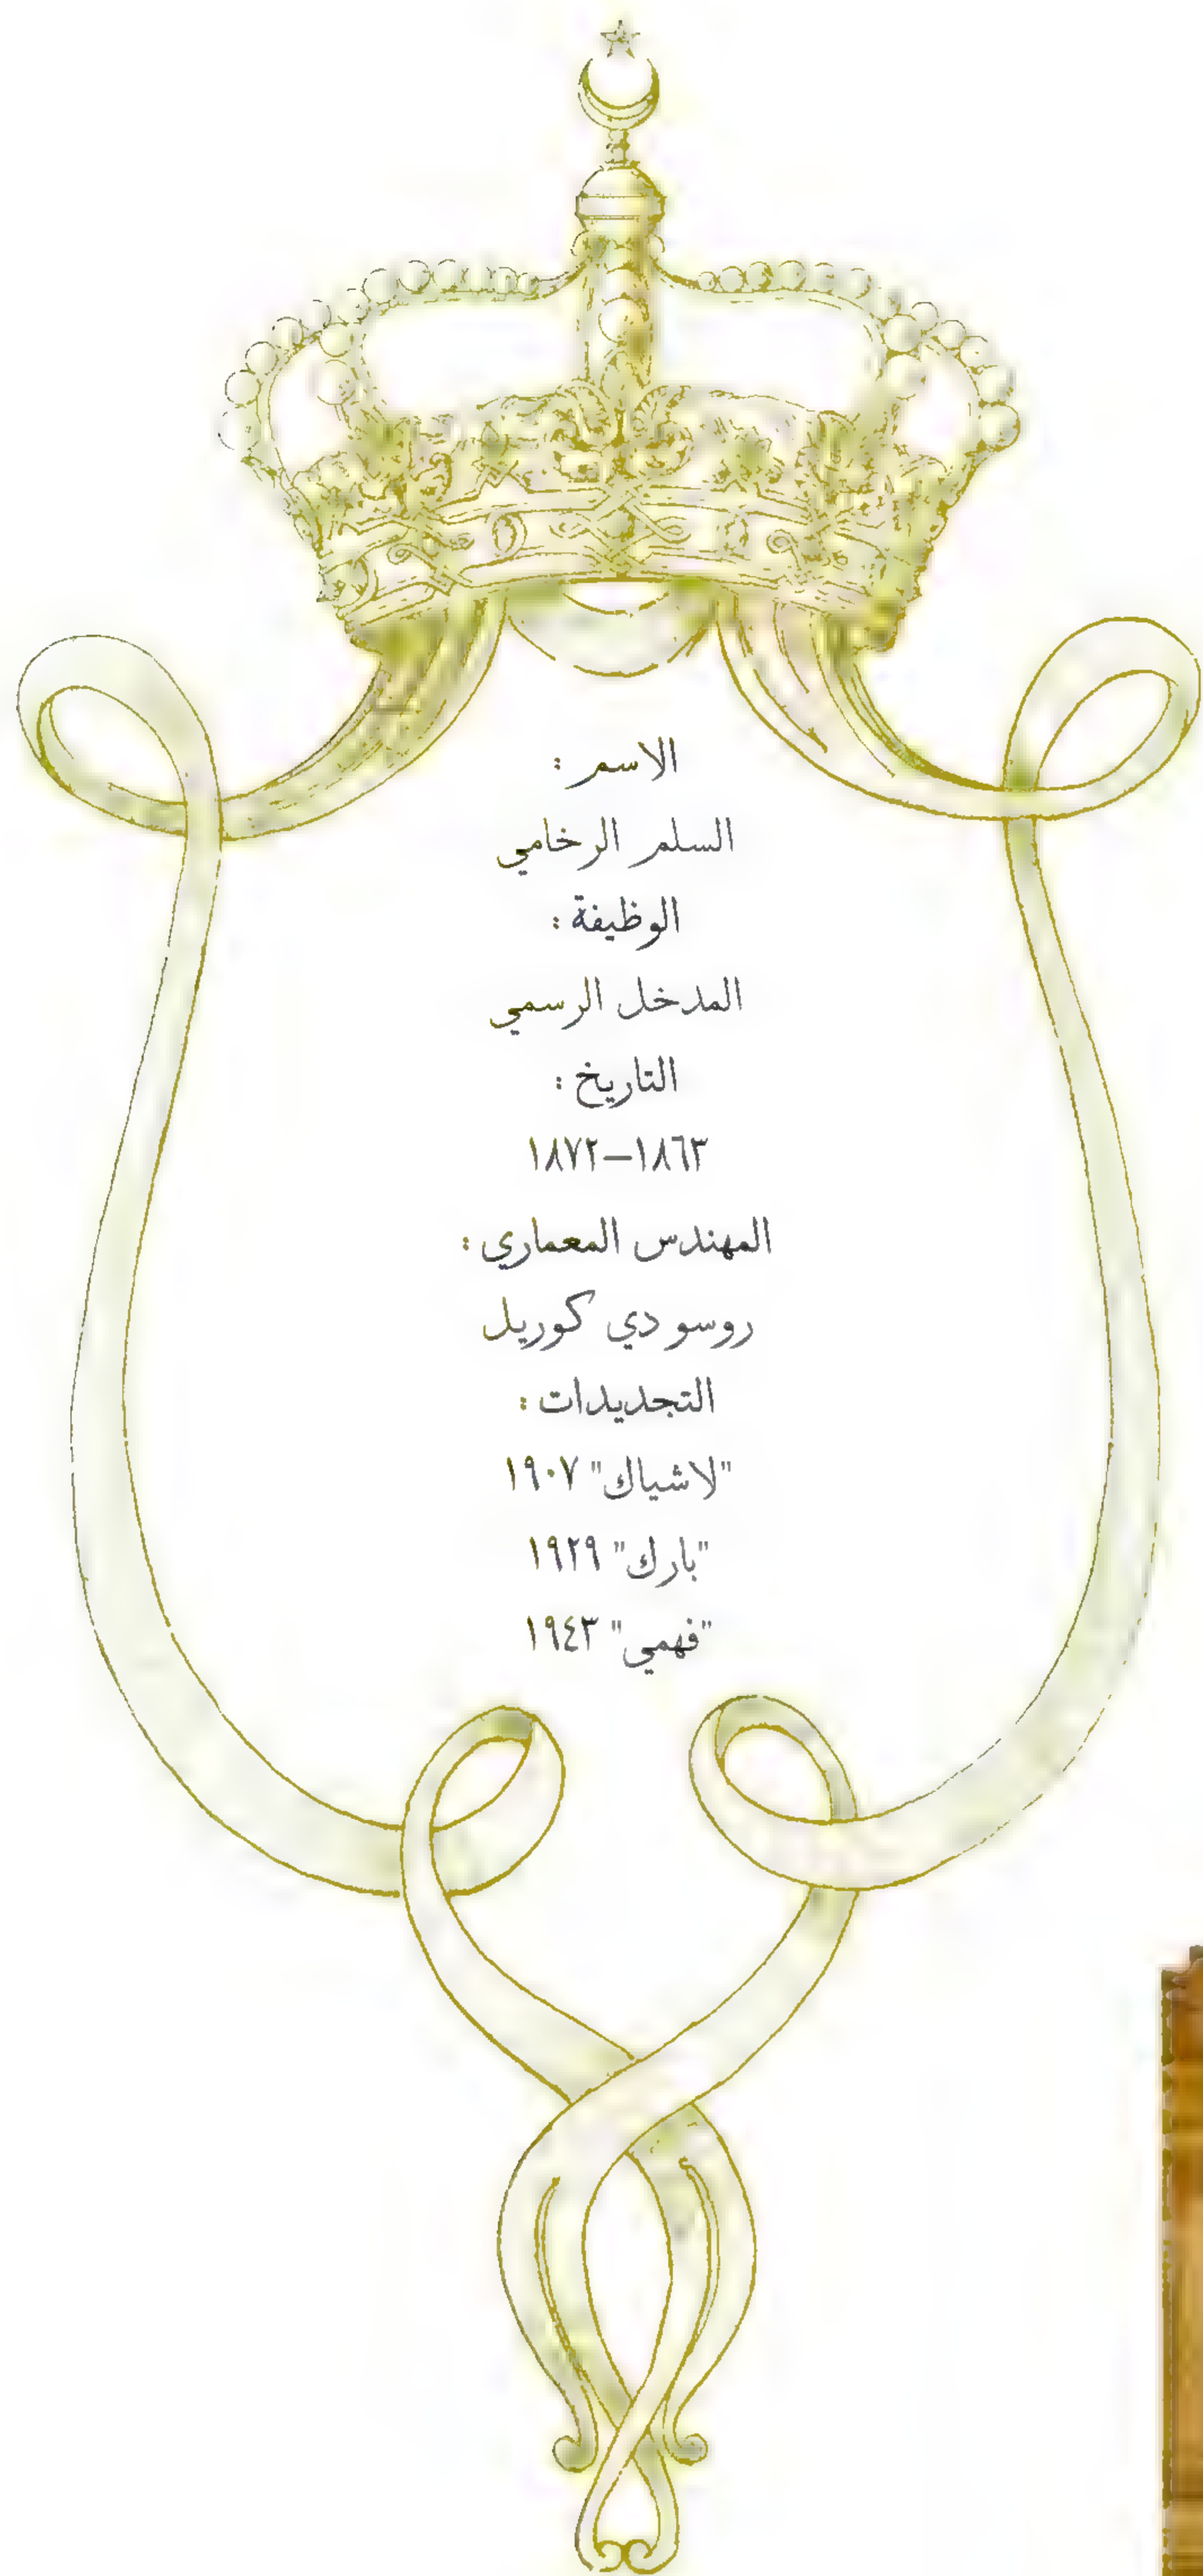 الاسم :
السلم الرخامي
الوظيفة :
المدخل الرسمي
التاريخ :
١٨٦٣–١٨٧٢
المهندس المعماري :
روسو دي كوريل
التجديدات :
"لاشياك" ١٩٠٧
"بارك" ١٩٢٩
"فهمي" ١٩٤٣